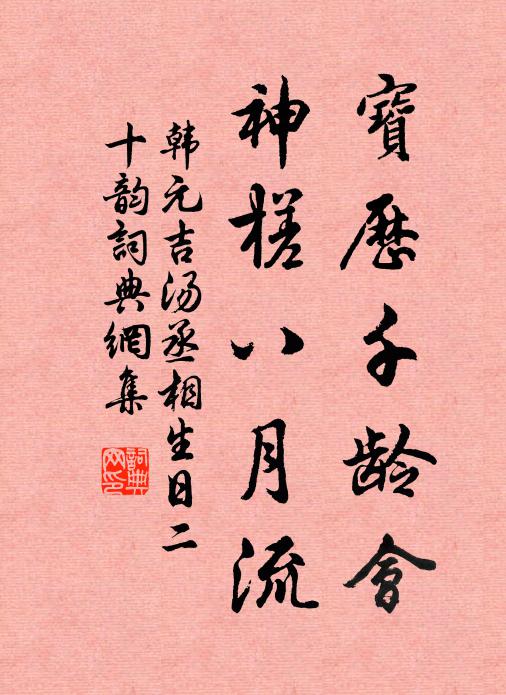 寶歷千龄會
神槎八月流
韩元吉汤丞相生日二
十韵詞典網集
詞典網印